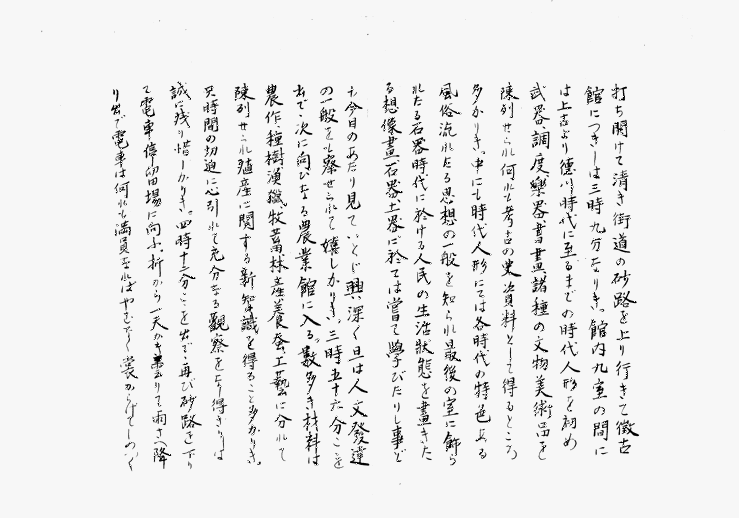 打ち開けて清き街道の砂路を上り行きて徴古
館につきしは三時九分なりき。館内九室の間に
は上古より徳川時代に至るまでの時代人形を初め
武器、調度、樂器、書畫、諸種の文物美術品を
陳列せられ何れも考古の史資料として得るところ
多かりき。中にも時代人形にては各時代の特色ある
風俗流れたる思想の一般を知られ最後の室に飾ら
れたる石器時代に於ける人民の生活狀態を畫きた
る想像畫、石器、土器に於ては嘗て學びたりし事ど
も今目のあたり見ていとど興深く且は人文發達
の一般をも察せられて嬉しかりき。三時五十六分ここを
出で、次に向ひなる農業館に入る。數多き材料は
農作、種樹、漁獵、牧畜、林産、養蚕、工藝に分れて
陳列せられ殖産に関する新知識を得ること多かりき。
只時間の切迫に心引れて充分なる觀察をなり得ざりしは
誠に残り惜しかりき。四時十三分ここを出で再び砂路を下り
て電車停留場に向ふ。折から一天かき曇りて雨さへ降
り出で電車は何れも満員なればやむなく裳からげてしのつく